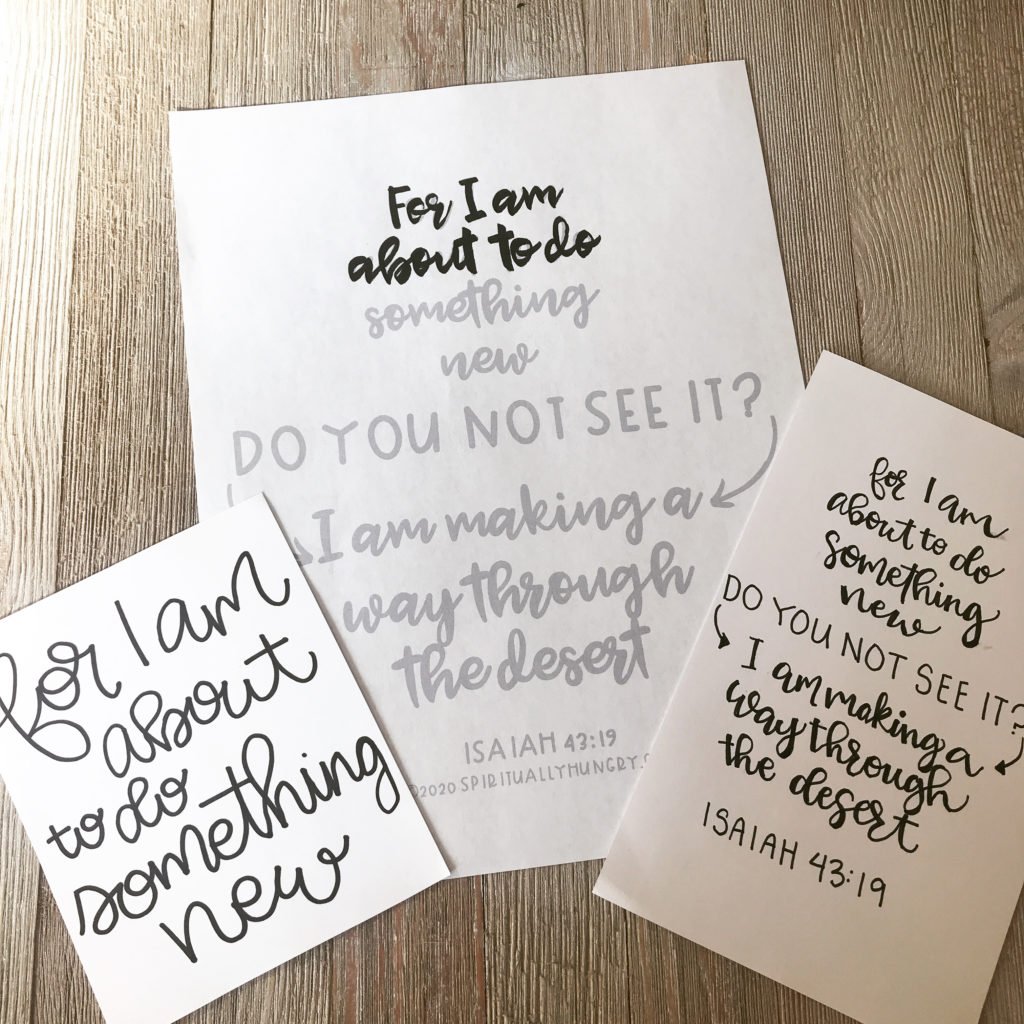 For I am
about to do
something
new
DO YOU NOT SEE IT?
I am making a
way through
the desert
ISAIAH 43:19
©2020 SPIRITUALLYHUNGRY.
for I am
about
to do
something
new
for I am
about to do
something
new
DO YOU NOT SEE IT?
I am making a
way through
the desert
ISAIAH 43:19